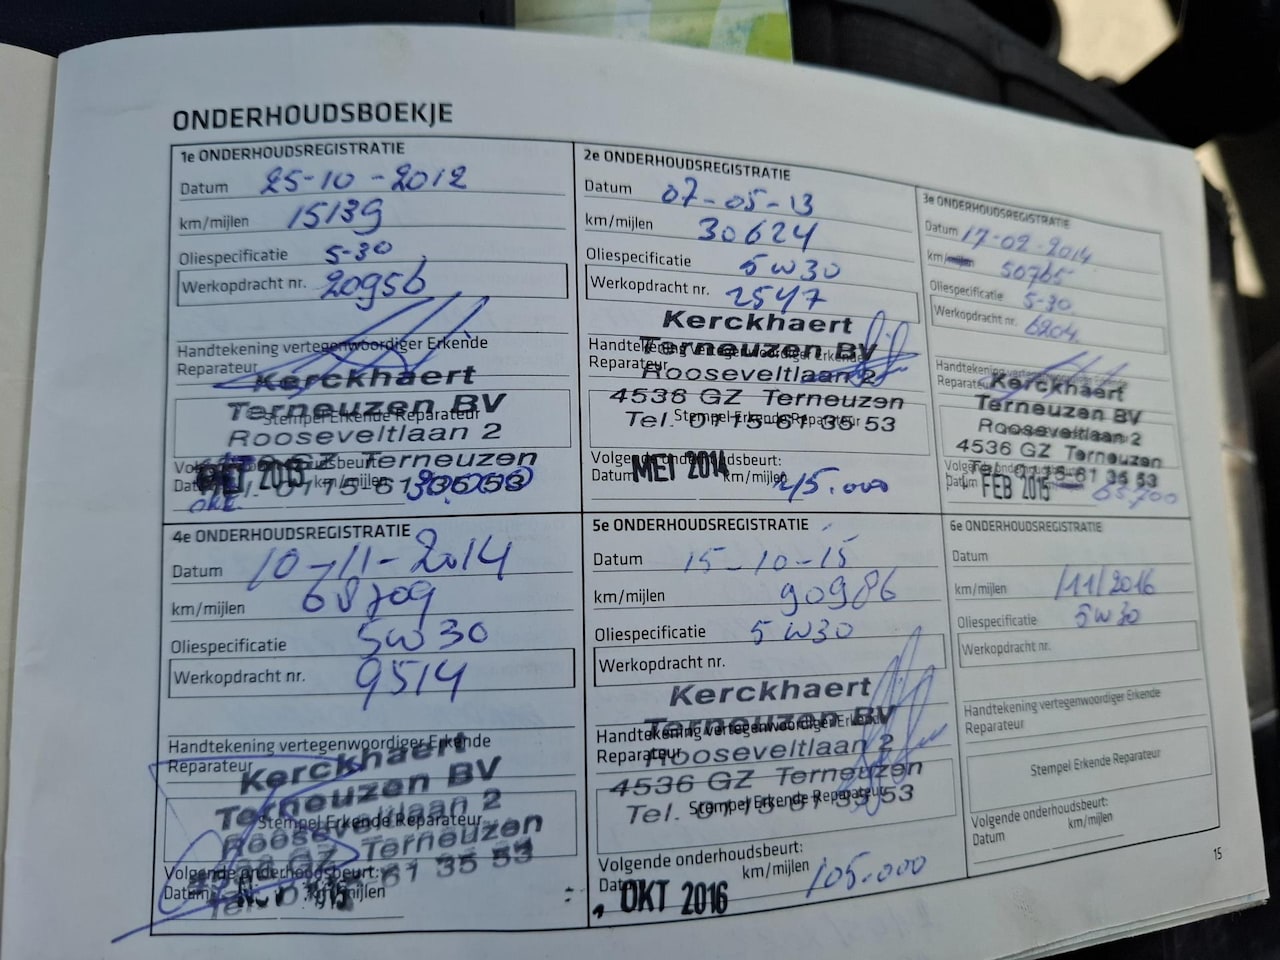 ONDERHOUDSBOEKJE
1e ONDERHOUDSREGISTRATIE
Datum 25-10-2012
km/mijlen 15139
Oliespecificatie 5-30
Werkopdracht nr. 20956
Handtekening vertegenwoordiger Erkende
Reparateur
Kerckhaert
Terneuzen BV
Stempel Erkende Reparateur
Rooseveltlaan 2
GZ Terneuzen
Volgende onderhoudsbeurt:
Datum 2013 km/mijlen
okt.
2e ONDERHOUDSREGISTRATIE
Datum 07-05-13
km/mijlen 30624
Oliespecificatie 5W30
Werkopdracht nr. 2547
Kerckhaert
Handtekening vertegenwoordiger Erkende
Terneuzen BV
Reparateur
Rooseveltlaan 2
4536 GZ Terneuzen
Stempel Erkende Reparateur
Tel. 0115 61 35 53
Volgende onderhoudsbeurt:
Datum MEI 2014 km/mijlen 45.000
3e ONDERHOUDSREGISTRATIE
Datum 17-02-2014
km/mijlen 50765
Oliespecificatie 5-30
Werkopdracht nr. 6204
Handtekening vertegenwoordiger Erkende
Reparateur
Kerckhaert
Terneuzen BV
Rooseveltlaan 2
4536 GZ Terneuzen
Volgende onderhoudsbeurt:
Datum FEB 2015 65.700
4e ONDERHOUDSREGISTRATIE
Datum 10-11-2014
km/mijlen 68709
Oliespecificatie 5W30
Werkopdracht nr. 9514
Handtekening vertegenwoordiger Erkende
Reparateur
Kerckhaert
Terneuzen BV
Rooseveltlaan 2
Stempel Erkende Reparateur
GZ Terneuzen
61 35 53
Volgende onderhoudsbeurt:
Datum km/mijlen
5e ONDERHOUDSREGISTRATIE
Datum 15-10-15
km/mijlen 90986
Oliespecificatie 5W30
Werkopdracht nr.
Kerckhaert
Terneuzen BV
Handtekening vertegenwoordiger Erkende
Reparateur
Rooseveltlaan 2
4536 GZ Terneuzen
Stempel Erkende Reparateur
Tel. 0115 61 35 53
Volgende onderhoudsbeurt:
Datum OKT 2016 km/mijlen 105.000
6e ONDERHOUDSREGISTRATIE
Datum
km/mijlen /11/2016
Oliespecificatie 5W30
Werkopdracht nr.
Handtekening vertegenwoordiger Erkende
Reparateur
Stempel Erkende Reparateur
Volgende onderhoudsbeurt:
Datum km/mijlen
15